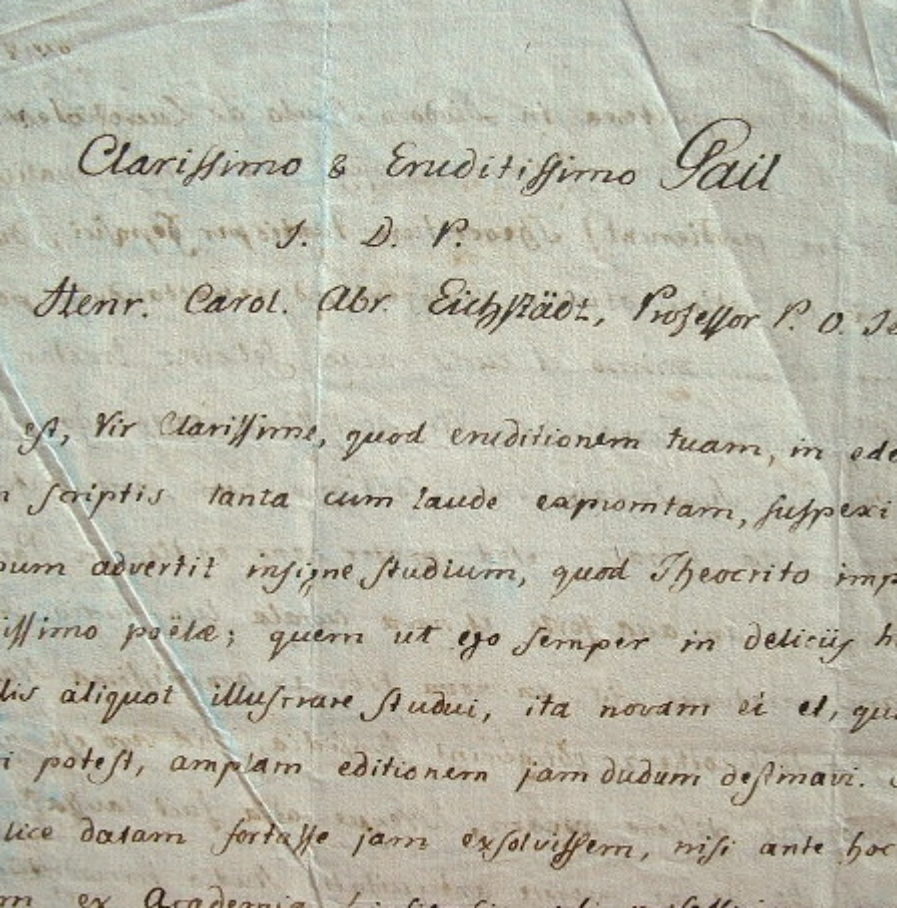 Clarissimo & Eruditissimo Gail
S. D. P.
Henr. Carol. Abr. Eichstädt, Professor P. O. Je
est, Vir Clarissime, quod eruditionem tuam, in ede
scriptis tanta cum laude expromtam, suspexi
um advertit insigne studium, quod Theocrito imp
issimo poëtæ; quem ut ego semper in deliciis h
lis aliquot illustrare studui, ita novam ei et, qu
i potest, amplam editionem jam dudum destinavi.
lice datam fortasse jam exsolvissem, nisi ante hoc
m ex Academia